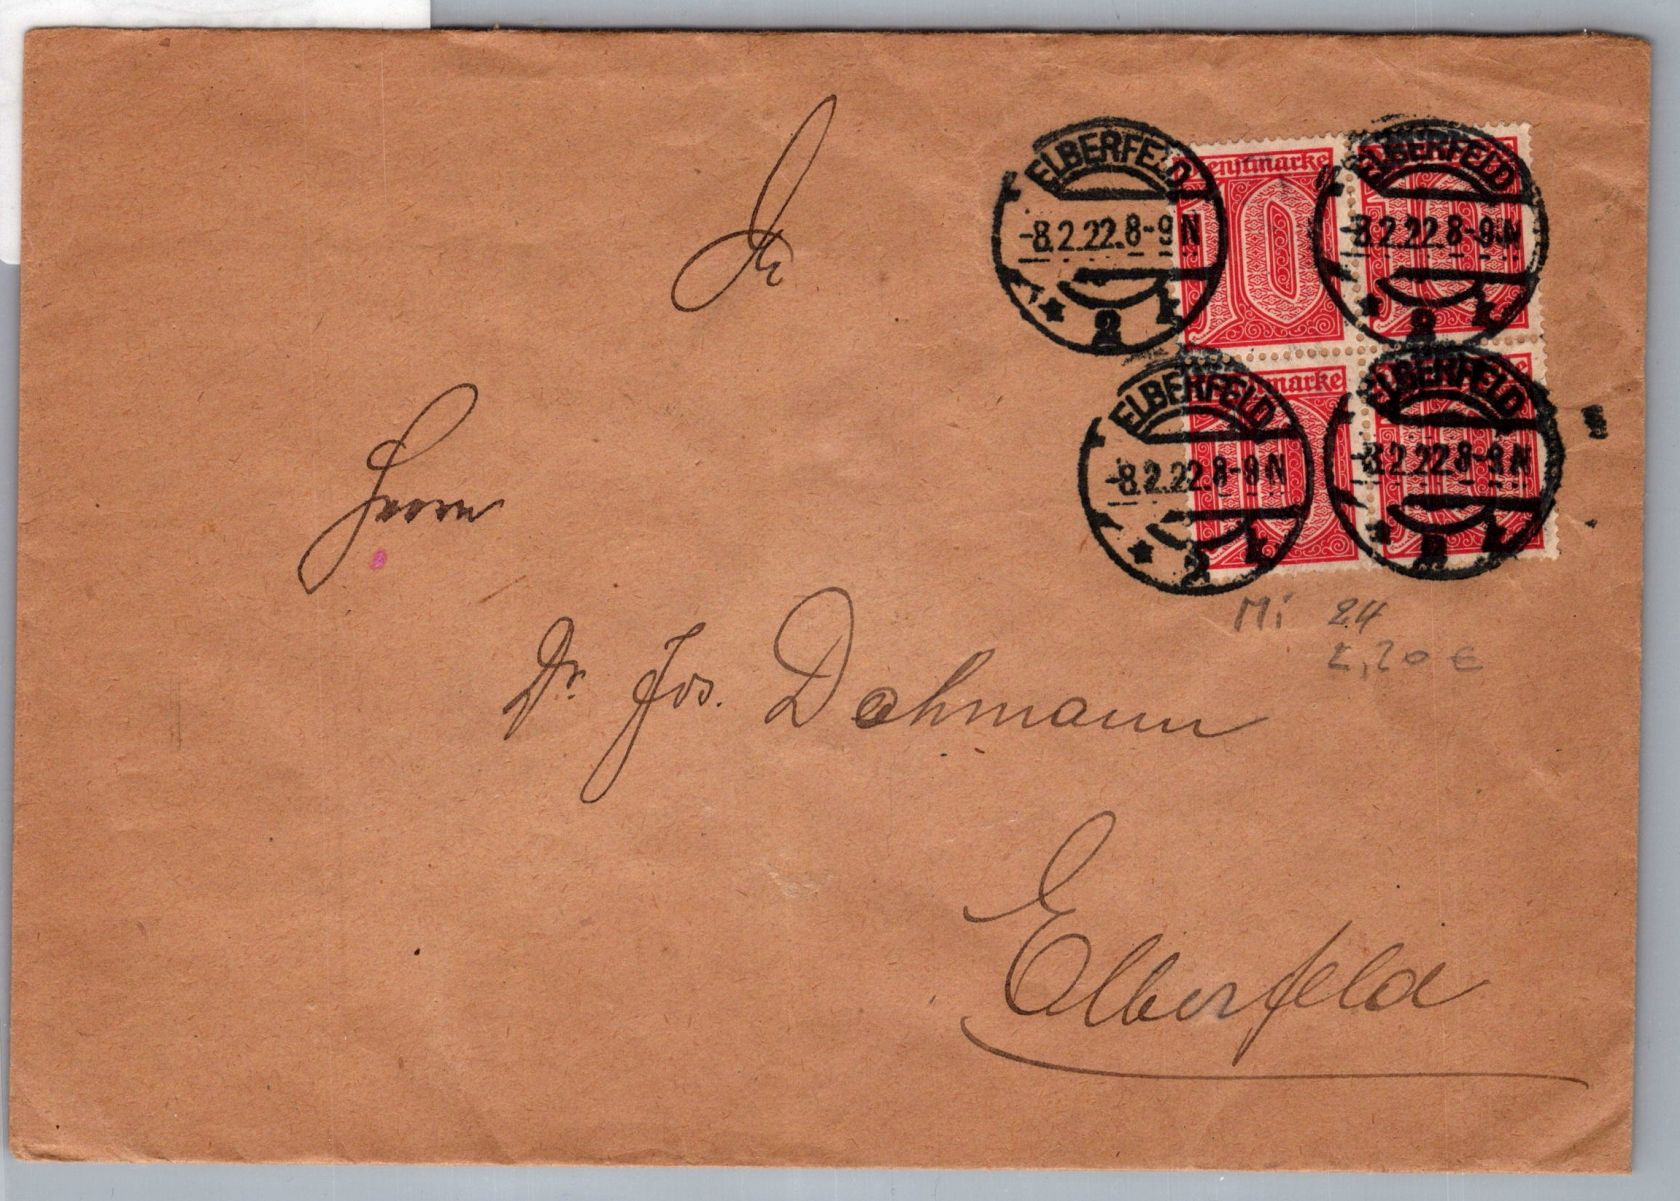 ELBERFELD
-8.2.22.8-9N
* 2 r
enstmarke
10
ELBERFELD
-8.2.22.8-9N
* 2 r
10
ELBERFELD
-8.2.22.8-9N
* 2 r
marke
10
ELBERFELD
-8.2.22.8-9N
10
Mi 24
2,20 €
Herrn
Dr. Jos. Dahmann
Elberfeld